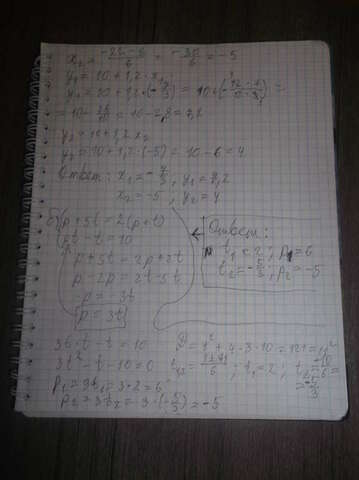 x₂ = (-24-6)/6 = -30/6 = -5
y₁ = 10 + 1,2 · x₁
= 10 - 28/10 = 10 - 2,8 = 7,2
y₂ = 10 + 1,2 x₂
y₂ = 10 + 1,2 · (-5) = 10 - 6 = 4
Ответ: x₁ = -7/3; y₁ = 7,2
x₂ = -5; y₂ = 4
б) p + 5t = 2(p+t)
pt - t = 10
p + 5t = 2p + 2t
p - 2p = 2t - 5t
-p = -3t
p = 3t
Ответ:
t₁ = 2; p₁ = 6
t₂ = -5/3; p₂ = -5
3t · t - t = 10
3t² - t - 10 = 0
p₁ = 3t₁ = 3 · 2 = 6
p₂ = 3t₂ = 3 · (-5/3) = -5
D = 1² + 4 · 3 · 10 = 121 = 11²
t₁,₂ = (1±11)/6; t₁ = 2; t₂ = -10/6 =
= -5/3